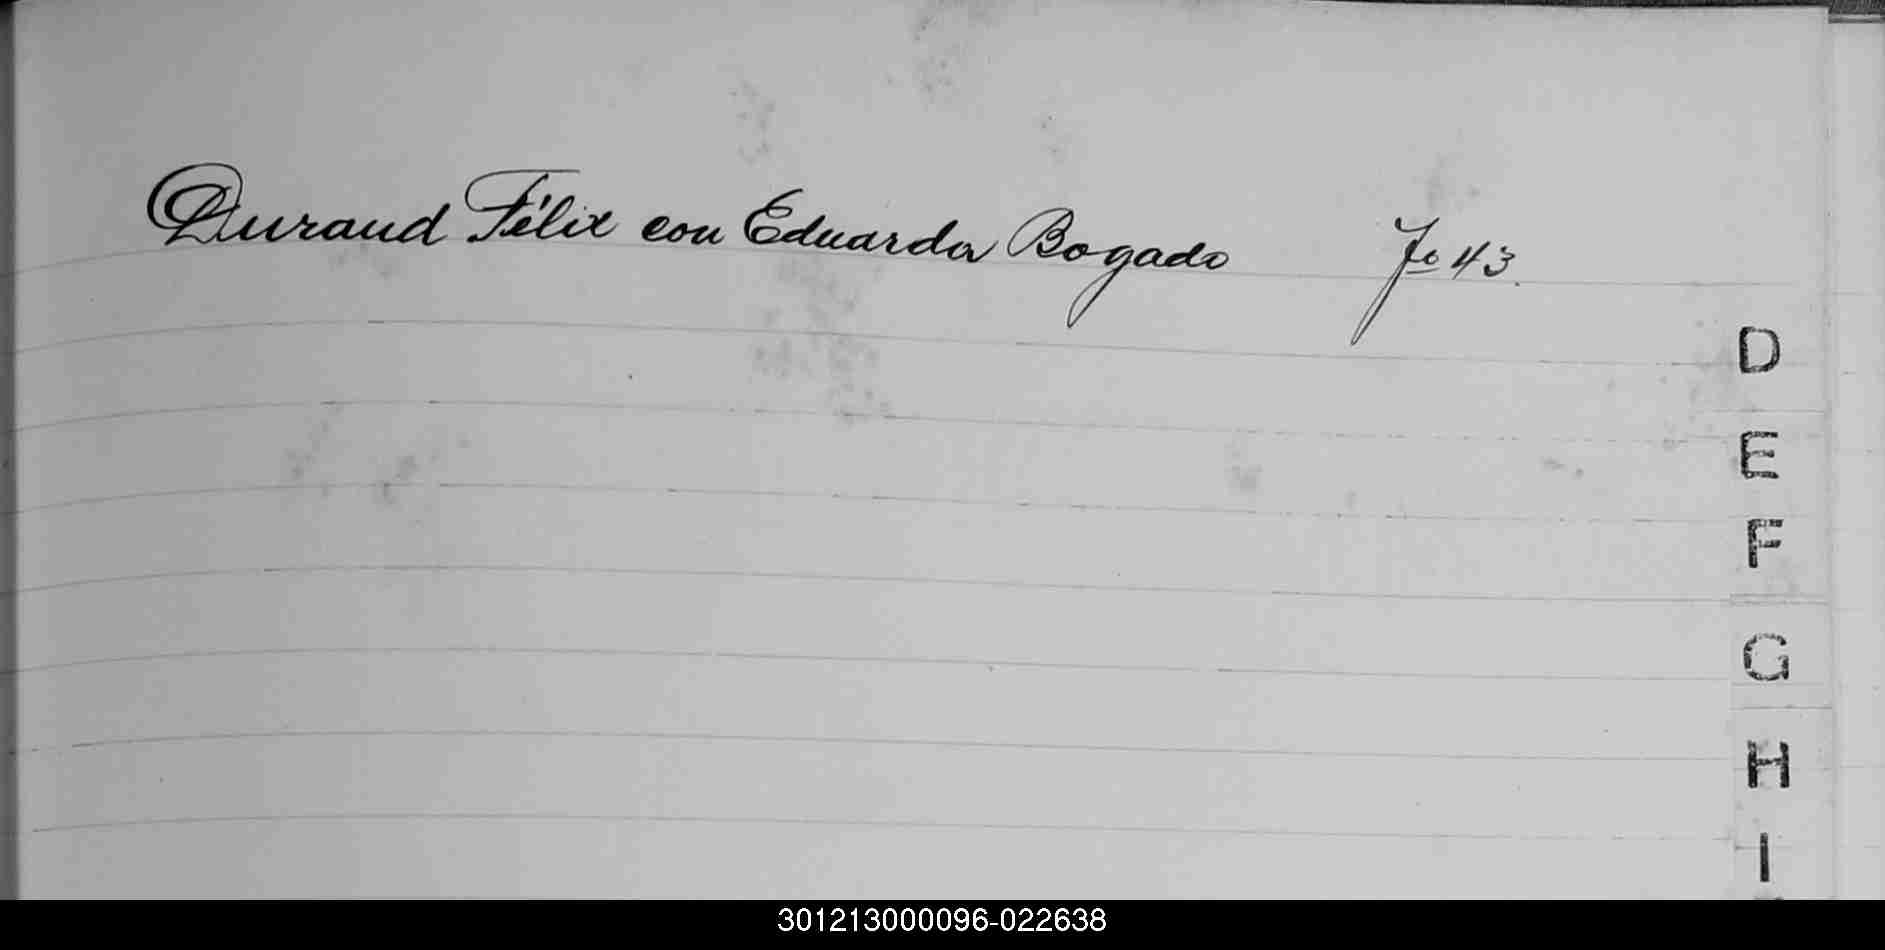 Durand Félix con Eduarda Bogado Fo 43.
D
E
F
G
H
I
301213000096-022638